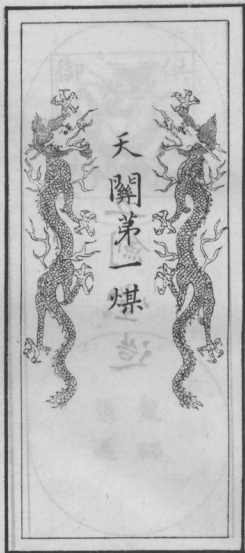 天關第一煤